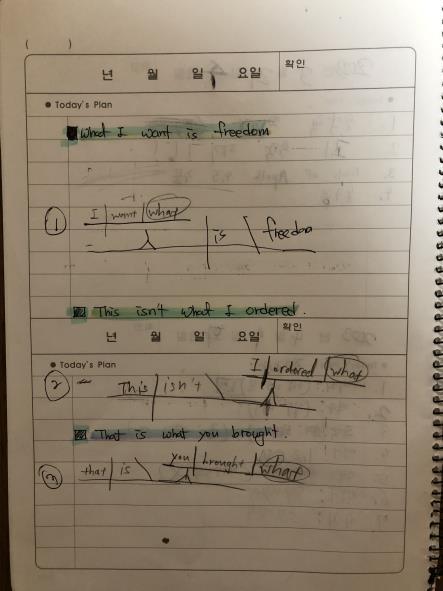 ( )
년 월 일 요일 확인
Today's Plan
What I want is freedom
① I want what
is freedom
This isn't what I ordered.
년 월 일 요일 확인
Today's Plan
I ordered what
② This isn't
That is what you brought.
③ that is you brought what